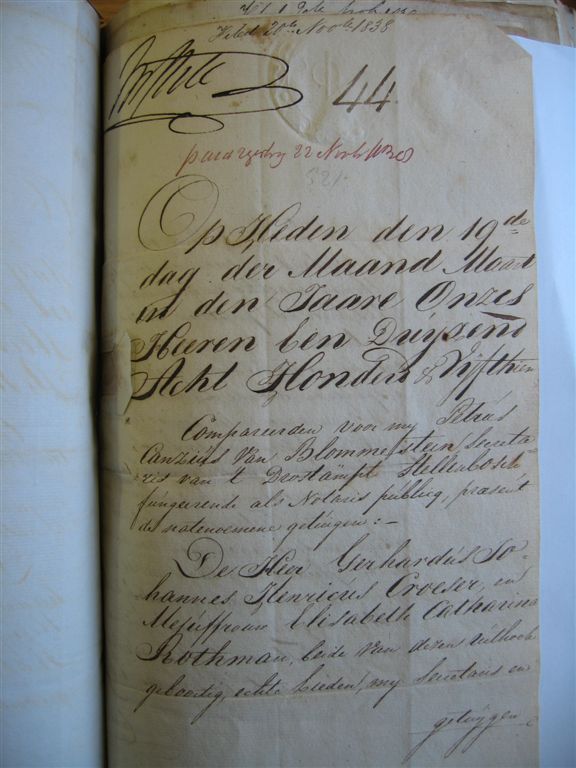 Filed 20th Novbr 1838
44
22 Novb 1838
321
Op Heden den 19de
dag der Maand Maart
in den Jaare Onzes
Heeren Een Duijzend
Acht Honderd & Vijfthien
Compareerden voor my Petrus
Canzius Van Blommestein, Secreta
ris van 't Drostampt Stellenbosch
fungeerende als Notaris publicq, præsent
de natenoemene getuigen: —
De Heer Gerhardus Jo-
hannes Henricus Croeser, en
Mejuffrouw Elisabeth Catharina
Rothman, beide van dezen uithoek
geboortig, echte Lieden, my Secretaris en
getuygen